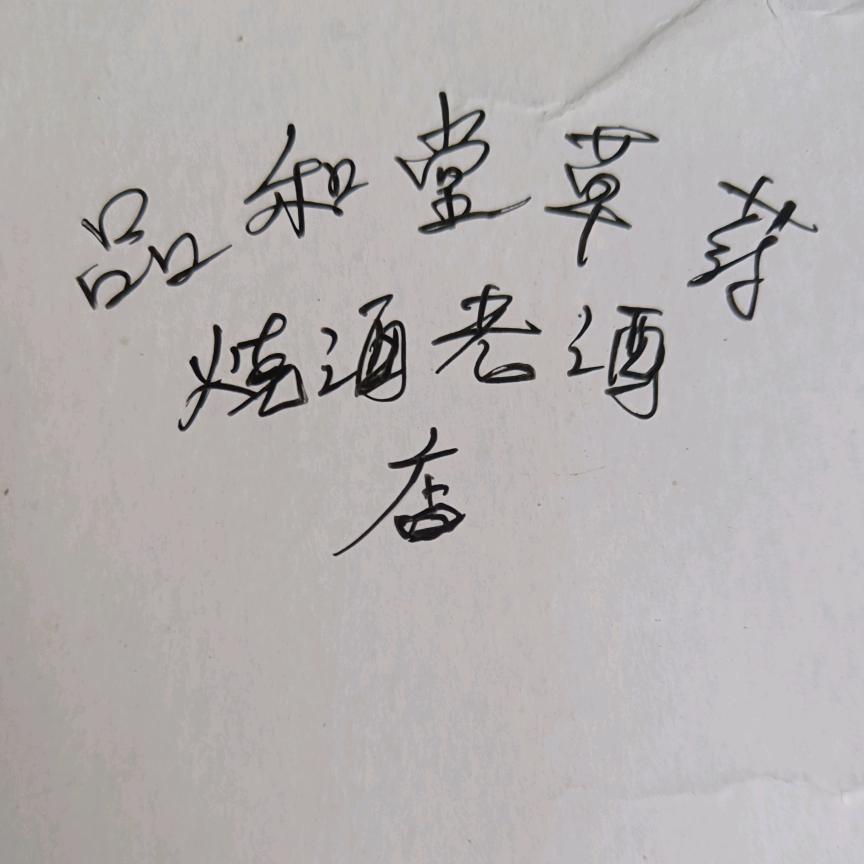 品和堂草芽
烧酒老酒
店